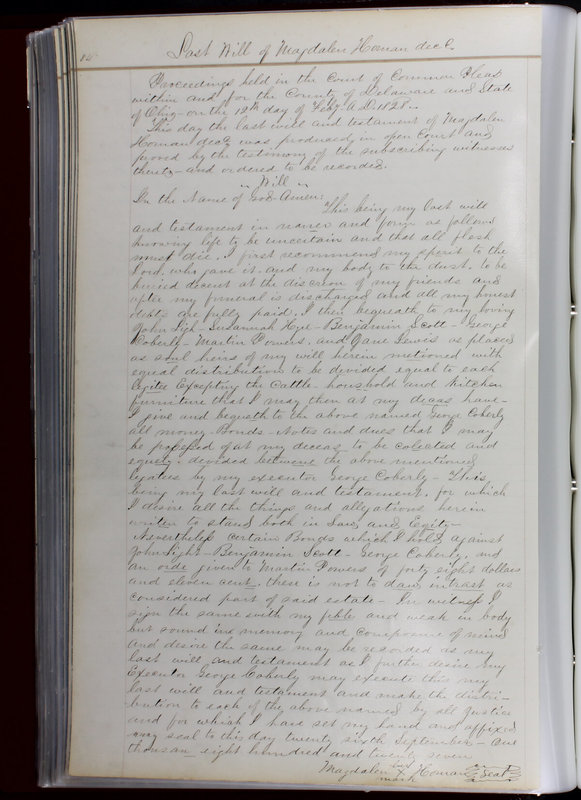 Last Will of Magdalen Homan decd.
Proceedings held in the Court of Common Pleas
within and for the County of Delaware and State
of Ohio on the 19th day of Feby A.D. 1828.
This day the last will and testament of Magdalen
Homan decd. was produced in open Court and
proved by the testimony of the subscribing witnesses
thereto and ordered to be recorded.
" Will "
In the Name of God Amen:
This being my last will
and testament in and form as follows
knowing life to be uncertain and that all flesh
must die. I first recommend my spirit to the
Lord who gave it and my body to the dust. to be
buried decent at the discreon of my friends and
after my funeral is discharged and all my honest
debts are fully paid. I then bequeath to my loving
John Ligh - Susannah Hye - Benjamin Scott - George
Coberly - Martin Powers. and Jane Lewis as placed
as soul heirs of my will herein metioned with
equal distribution to be divided equal to each
Excepting the Cattle. household and Kitchen
furniture that I may then at my deceas have -
I give and bequeth to the above named George Coberly
all money - Bonds - Notes and dues that I may
be prosessed of at my deceas to be colected and
equely. devided betwene the above mentioned
legatees by my executor George Coberly - This
being my last will and testament. for which
I desire all the things and allegations herein
writen to stand both in Law, and Eqity -
Nevertheless certain Bonds which I hold against
John Light - Benjamin Scott - George Coberly. and
an orde given to Martin Powers of forty eight dollars
and eleven cent. these is not to daw intrast as
considered part of said estate - In witness I
sign the same with my feble and weak in body
but sound in memory and composure of mind
and desire the same may be recorded as my
last will and testament as I further desire my
Executor George Coberly may execute this my
last will and testament and make the distri-
bution to each of the above named by all Justice
and for which I have set my hand and affixed
my seal to this day twenty sixth September - One
thousan eight hundred and twenty seven
Magdalen her X mark Homan Seal